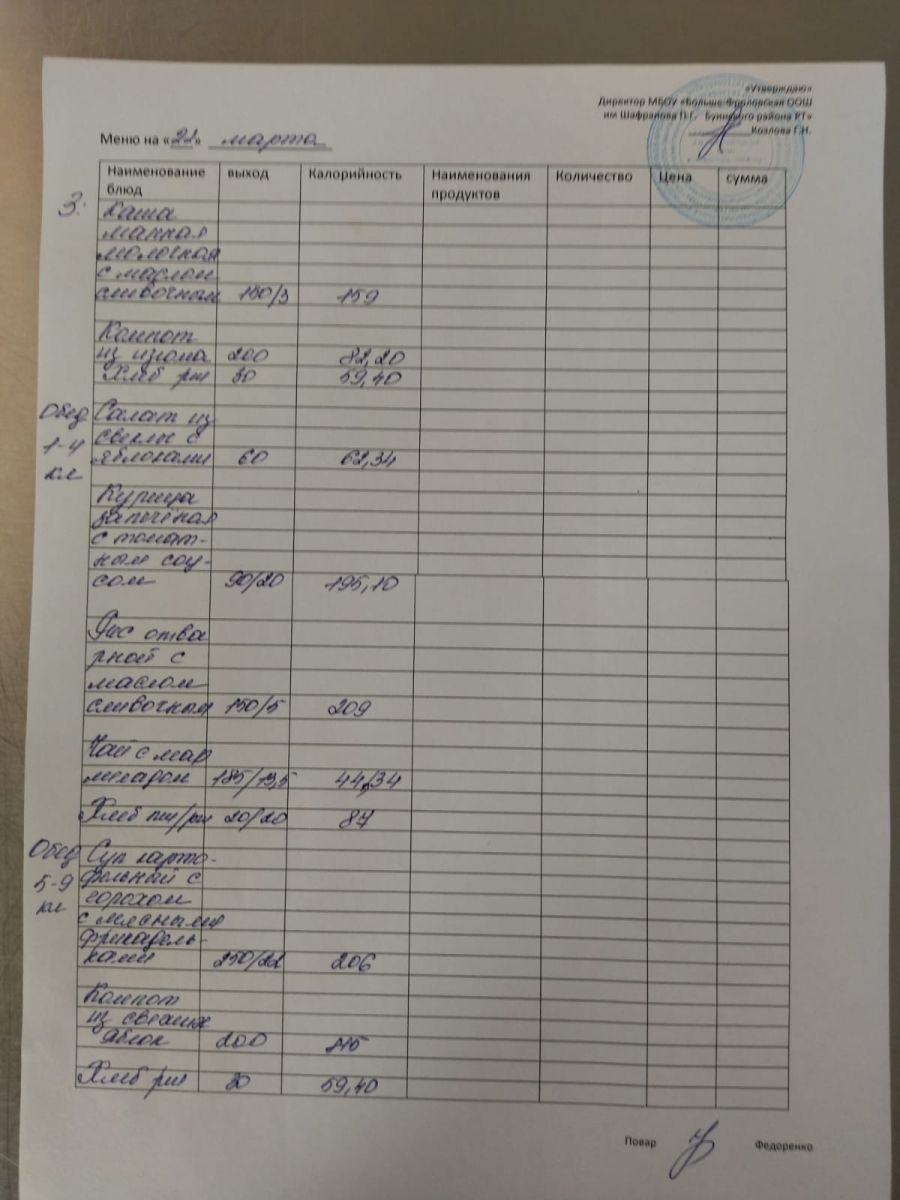 «Утверждаю»
Директор МБОУ «Больше-Фроловская ООШ
им Шафранова П.Г. Буинского района РТ»
Козлова Г.Н.
Меню на «21» марта
Наименование блюд выход Калорийность Наименования продуктов Количество Цена сумма
З:
Каша
манная
молочная
с маслом
сливочным 150/3 159
Компот
из изюма 200 82,20
Хлеб рж 30 59,40
Обед 1-4 кл
Салат из
свеклы с
яблоками 60 62,34
Курица
запечёная
с томат-
ным соу-
сом 90/20 195,10
Рис отва
рной с
маслом
сливочным 150/5 209
Чай с мар
меладом 185/13,5 44,34
Хлеб пш/рж 20/20 87
Обед 5-9 кл
Суп карто-
фельный с
горохом
с мясными
фрикадель-
ками 250/22 206
Компот
из свежих
яблок 200 115
Хлеб рж 30 59,40
Повар Федоренко